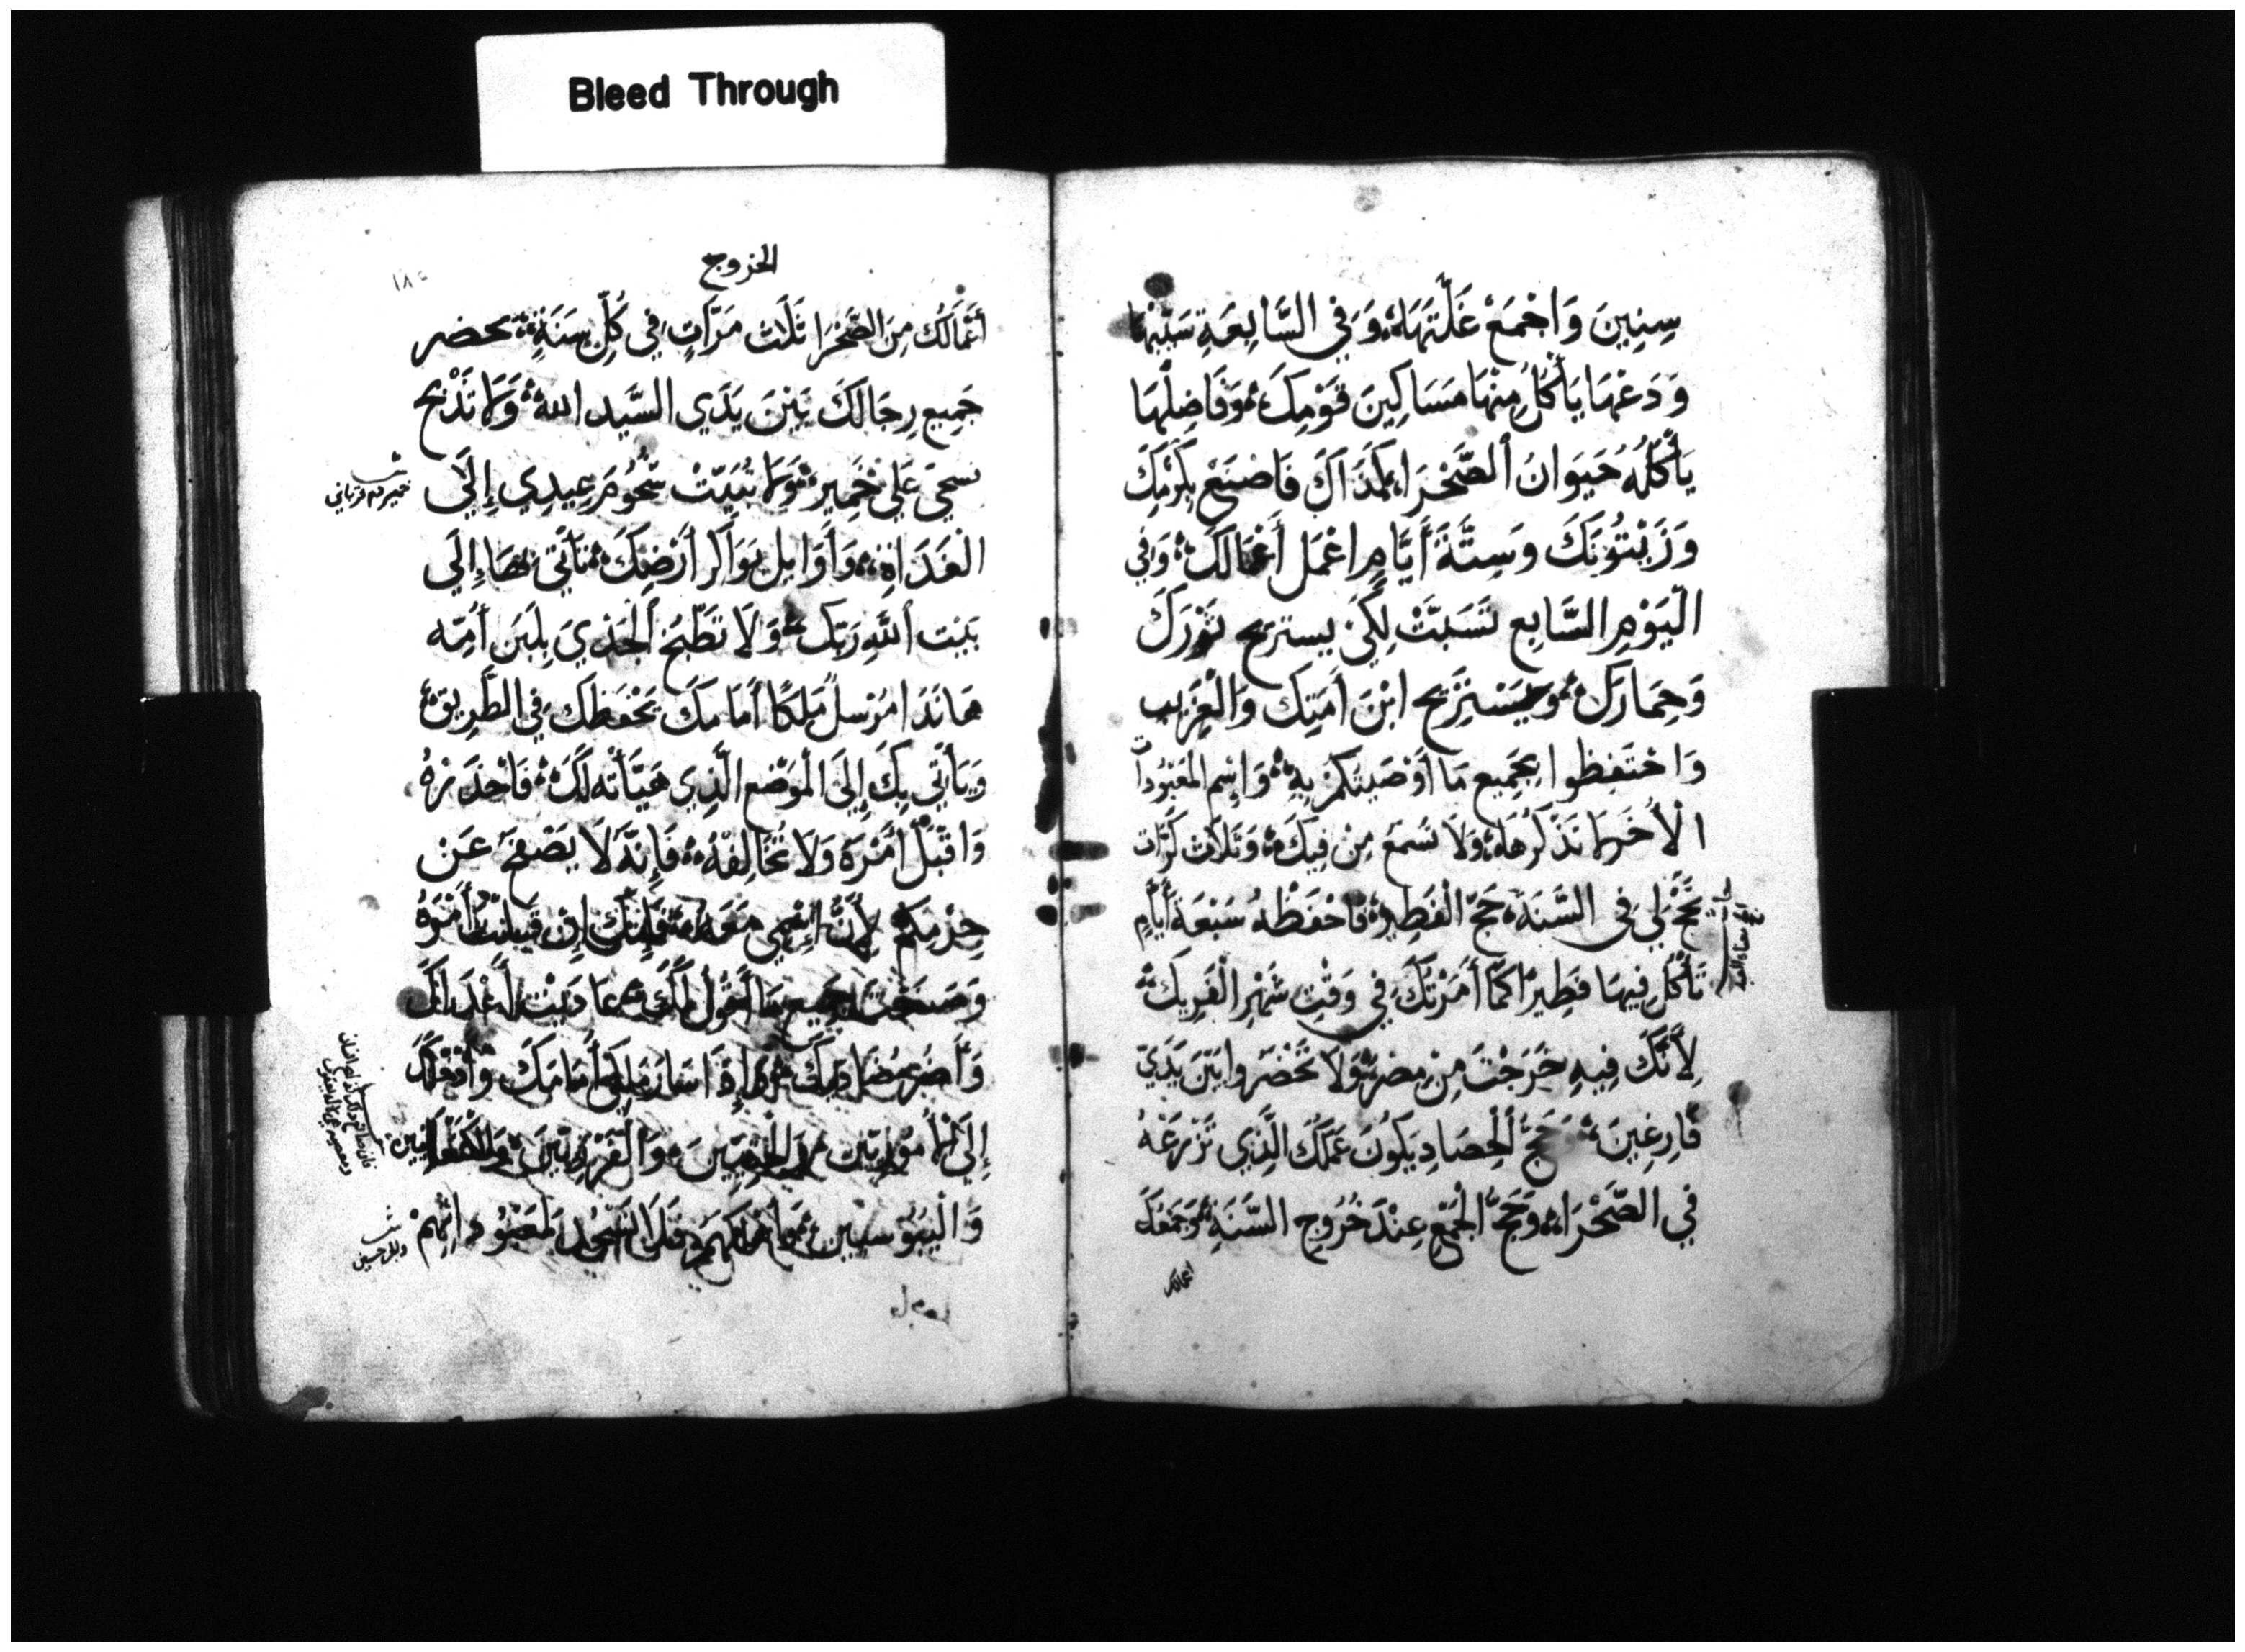 Bleed Through
سِنِينَ وَاجْمَعْ غَلَّتَهَا وَفِي السَّابِعَةِ سَبِّتْهَا
وَدَعْهَا يَأْكُلُ مِنْهَا مَسَاكِينَ قَوْمِكَ وَفَاضِلُهَا
يَأْكُلُهُ حَيَوَانُ الصَّحْرَا كَذَاكَ فَاصْنَعْ بِكَرْمِكَ
وَزَيْتُونِكَ وَسِتَّةَ أَيَّامٍ اعْمَل أَعْمَالَكَ وَفِي
الْيَوْمِ السَّابِع تَسَبَّتْ لِكَيْ يستريح ثَوْرَكَ
وَحِمَارَكَ وَيَسْتَرِيح ابْنَ أَمَتِكَ وَالْغَرِيب
وَاحْتَفِظُوا بِجَمِيع مَا أَوْصَيْتَكُمْ بِهِ وَاسِم المَعْبُودَاث
الْأُخَر لَا تَذْكُرْهَا وَلَا تُسْمَع مِنْ فِيكَ وَثَلَاث كَرَّات
تَحُجّ لِي فِي السَّنَةِ حَجّ الْفَطِيرِ فَاحْفَظْهُ سَبْعَةَ أَيَّامٍ
تَأْكُل فِيهَا فَطِيرًا كَمَا أَمَرْتُكَ فِي وَقْتِ شَهْرِ الْفَرِيكِ
لِأَنَّكَ فِيهِ خَرَجْتَ مِنْ مِصْرَ وَلَا تَحْضَرُوا بَيْنَ يَدَيَّ
فَارِغِينَ حَجّ الْحِصَادِ يَكُونَ عَمَلَكَ الَّذِي تَزْرَعْهُ
فِي الصَّحْرَاءِ وَحَجّ الْجَمْعِ عِنْدَ خُرُوجِ السَّنَةِ وَجَمْعَكَ
اعمالك
الخروج
أَعْمَالَكَ مِنَ الصَّحْرَا ثَلَاث مَرَّاتٍ فِي كُلِّ سَنَةٍ تَحضر
جَمِيع رِجَالَكَ بَيْنَ يَدَي السَّيِّد الله وَلَا تَذْبَح
عَلَى خَمِيرٍ وَلَا تُبَيِّتْ شُحُومَ عِيدِي إِلَى
الْغَدَاةِ وَأَوَايِل بَوَاكِر أَرْضِكَ تَأْتِي بِهَا إِلَى
بَيْت اللهِ رَبِّكَ وَلَا تَطْبُخ الْجَدْيَ بِلَبَنِ أُمِّه
هَا نَذَا مُرْسِلُ مَلَكًا أَمَامَكَ يَحْفَظكَ فِي الطَّرِيق
وَيَأْتِي بِكَ إِلَى الْمَوْضِع الَّذِي هَيَّأته لَكَ فَاحْذَرْهُ
وَاقْبَلْ أَمْرَهُ وَلَا تُخَالِفْهُ فَإِنَّهُ لَا يَصْفَح عَنْ
جُرْمِكُمْ لِأَنَّ اسْمِي مَعَهُ فَإِنَّكَ إِنْ قَبِلْتَ أَمْرَهُ
وَصَنَعْتَ جَمِيع مَا أَقُول لَكَ عَادَيْت أَعْدَاكَ
وَأَضُر مُضَادِيكَ وَإِذَا سَارَ مَلَكِي أَمَامَكَ
إِلَى الْأَمُورِيِّين وَالْفَرْزِيِّينَ
وَالْيَبُوسِيِّين فَلَا تَسْجُد لِمَعْبُودَاتِهِمْ